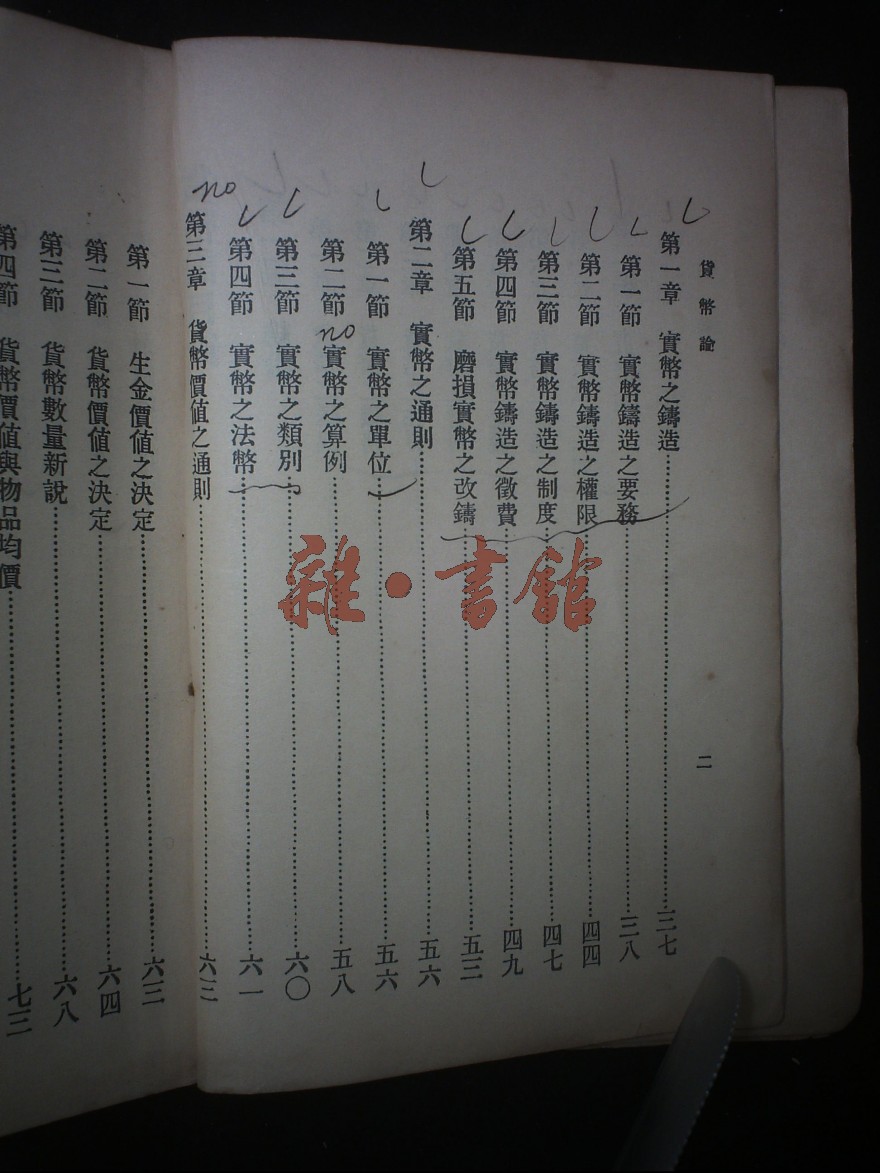 貨幣論
二
第一章 實幣之鑄造……三七
第一節 實幣鑄造之要務……三八
第二節 實幣鑄造之權限……四四
第三節 實幣鑄造之制度……四七
第四節 實幣鑄造之徵費……四九
第五節 磨損實幣之改鑄……五三
第二章 實幣之通則……五六
第一節 實幣之單位……五六
第二節 實幣之算例……五八
no
第三節 實幣之類別……六〇
第四節 實幣之法幣……六一
no
第三章 貨幣價值之通則……六三
第一節 生金價值之決定……六三
第二節 貨幣價值之決定……六四
第三節 貨幣數量新說……六八
第四節 貨幣價值與物品均價……七三
雜·書館